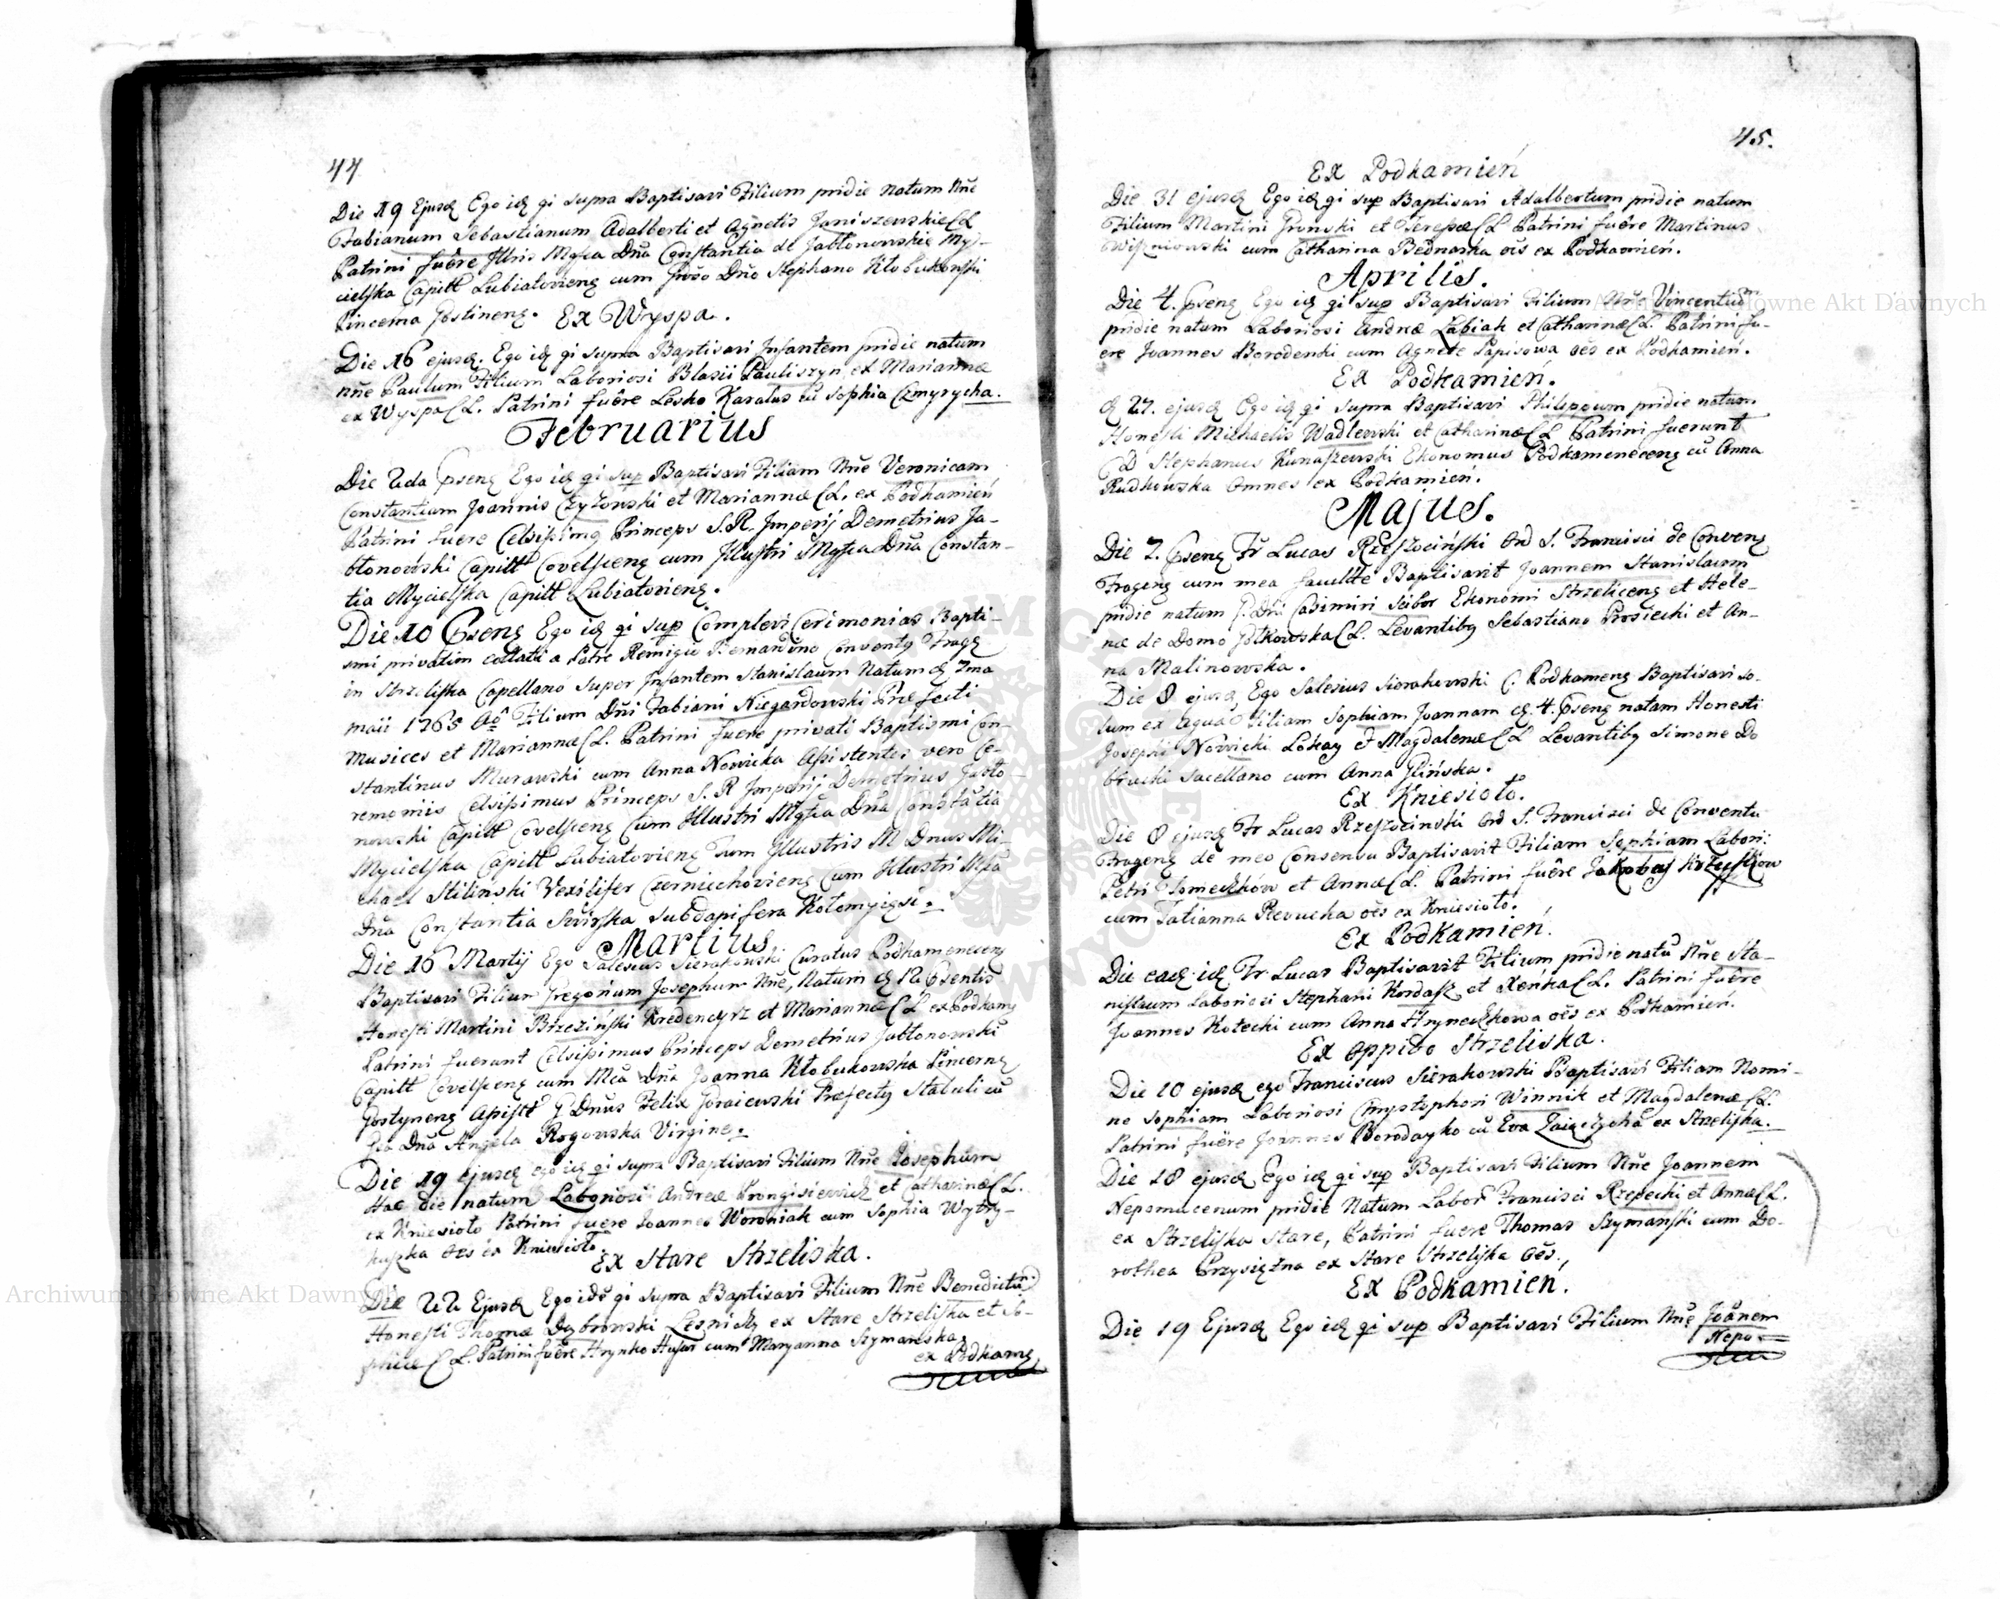 44
Die 19 Ejusd Ego id gi supra Baptisavi Filium pridie natum Nne
Fabianum Sebastianum Adalberti et Agnetis Janiszewskie CL
Patrini fuêre Illris Mgfca Dna Constantia de Jabłonowskie Myj-
cielska Capitt Lubiatoviens cum Gnoso Dno Stephano Kłobukowski
Pincerna Gostinens. Ex Wyspa.
Die 16 ejusd. Ego id gi supra Baptisavi Infantem pridie natum
nne Paulum Filium Laboriosi Blasii Pauliszyn et Mariannæ
ex Wyspa CL. Patrini fuêre Lesko Karalus cu Sophia Czmyrycha.
Februarius
Die 2da Psens Ego id gi sup Baptisavi Filiam Nne Veronicam
Constantiam Joannis Czyżowski et Mariannæ CL. ex Podkamień
Patrini fuere Celsissimq Princeps S.R. Imperij Demetrius Ja-
błonowski Capitt Covelscens cum Illustri Mgfca Dna Constan-
tia Mycielska Capitt Lubiatoviens.
Die 10 Psens Ego id gi sup Complevi Cerimonias Bapti-
smi privatim collati a Patre Remigio Bernardino Conventq Frags
in Strzeliska Capellano super Infantem Stanislaum Natum d 7ma
maii 1765 Ao Filium Dni Fabiani Niegardowski Præfecti
musices et Mariannæ CL. Patrini fuere privati Baptismi Con-
stantinus Murawski cum Anna Nowicka Assistentes vero Ce-
remoniis Celsissimus Princeps S. R Imperij Demetrius Jabło-
nowski Capitt Covelscens Cum Illustri Mgfca Dna Constatia
Mycielska Capitt Lubiatoviens Tum Illustris M Dnus Mi-
chael Stiliński Vexilifer Czerniechoviens Cum Illustri Mfca
Dna Constantia Swirska Subdapifera Kołomyięsi.
Martius
Die 16 Martij Ego Salesius Sierakowski Curatus Podkamenecens
Baptisavi Filium Gregorium Josephum Nne, Natum d 12 Psentis
Honesti Martini Brzeziński Kredencyrz et Mariannæ CL ex Podkams
Patrini fuerunt Celsissimus Princeps Demetrius Jabłonowski
Capitt Covelscens cum Mca Dna Joanna Kłobukowska Pincerns
Gostynens Apistt G Dnus Felix Goraiewski Præfectq Stabuli cu
Gsa Dna Angela Rogowska Virgine.
Die 19 ejusd ego id gi supra Baptisavi Filium Nne Iosephum
Hac die natum Laboriosi Andreæ Prongisiewicz et Catharinæ CL.
ex Kniesioło Patrini fuere Joannes Woroniak cum Sophia Wytry-
kuszka oēs ex Kniesioło
Ex Stare Strzeliska.
Die 22 Ejusd Ego ide gi supra Baptisavi Filium Nne Benedictu
Honesti Thomæ Dąbrowski Lesniczy ex Stare Strzeliska et So-
phiæ CL. Patrini fuêre Hrynko Husar cum Maryanna Szymańska
ex Podkams
45.
Ex Podkamień
Die 31 ejusd Ego id gi sup Baptisavi Adalbertum pridie natum
Filium Martini Gronski et Teresæ CL Patrini fuêre Martinus
Wiszniowski cum Catharina Bednarka oēs ex Podkamień.
Aprilis.
Die 4. Psens Ego id gi sup Baptisavi Filium Nne Vincentiu
pridie natum Laboriosi Andreæ Labiak et Catharinæ CL. Patrini fu-
ere Joannes Borodenki cum Agnete Papisowa oēs ex Podkamień.
Ex Podkamień.
d 27. ejusd Ego id gi supra Baptisavi Philippum pridie natum
Honesti Michaelis Wadlewski et Catharinæ CL Patrini fuerunt
G D Stephanus Kunaszewski Ekonomus Podkamenecens cu Anna
Rudkowska Omnes ex Podkamień.
Majus.
Die 7. Psens Fr Lucas Rzeszociński Ord S. Francisci de Convens
Frageng cum mea facultte Baptisavit Joannem Stanislaum
pridie natum G. Dni Casimiri Scibor Ekonomi Strzelicens et Hele-
næ de Domo Gołkowska CL. Levantibq Sebastiano Prosiecki et An-
na Malinowska.
Die 8 ejusd Ego Salesius Sierakowski C. Podkamens Baptisavi so-
lum ex Aqua Filiam Sophiam Joannam d 4. Psens natam Honesti
Josephi Nowicki Lokay et Magdalenæ CL Levantibq Simone Do
bracki Sacellano cum Anna Glińska.
Ex Kniesioło.
Die 8 ejusd Fr Lucas Rzeszocinski Ord S. Francisci de Conventu
Frageng de meo Consensu Baptisavit Filiam Sophiam Labori:
Petri Tomeczków et Annæ CL. Patrini fuêre Jakobus Krzysków
cum Tatianna Revucha oēs ex Kniesioło.
Ex Podkamień.
Die ead id Fr. Lucas Baptisavit Filium pridie natu Nne Sta-
nislaum Laboriosi Stephani Kordasz et Xeńka CL. Patrini fuêre
Joannes Kotecki cum Anna Hryneczkowa oēs ex Podkamień.
Ex Oppido Strzeliska.
Die 10 ejusd ego Franciscus Sierakowski Baptisavi Filiam Nomi-
ne Sophiam Laboriosi Chrystophori Winnik et Magdalenæ CL.
Patrini fuêre Joannes Borodayko cu Eva Zaięczycha ex Strzeliska.
Die 18 ejusd Ego id gi sup Baptisavi Filium Nne Joannem
Nepomucenum pridie Natum Labor Francisci Rzepecki et Annæ CL.
ex Strzeliska Stare, Patrini fuere Thomas Szymański cum Do-
rothea Przysiężna ex Stare Strzeliska oēs.
Ex Podkamień.
Die 19 Ejusd Ego id gi sup Baptisavi Filium Nne Joanem
Nepo=
Archiwum Główne Akt Dawnych
Archiwum Główne Akt Dawnych